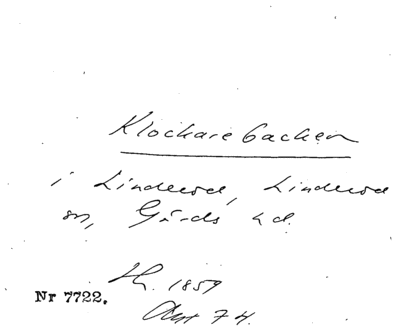 Klockarebacken
i Linderöd, Linderöd
sn, Gärds hd.
Nr 7722.
1859
74.